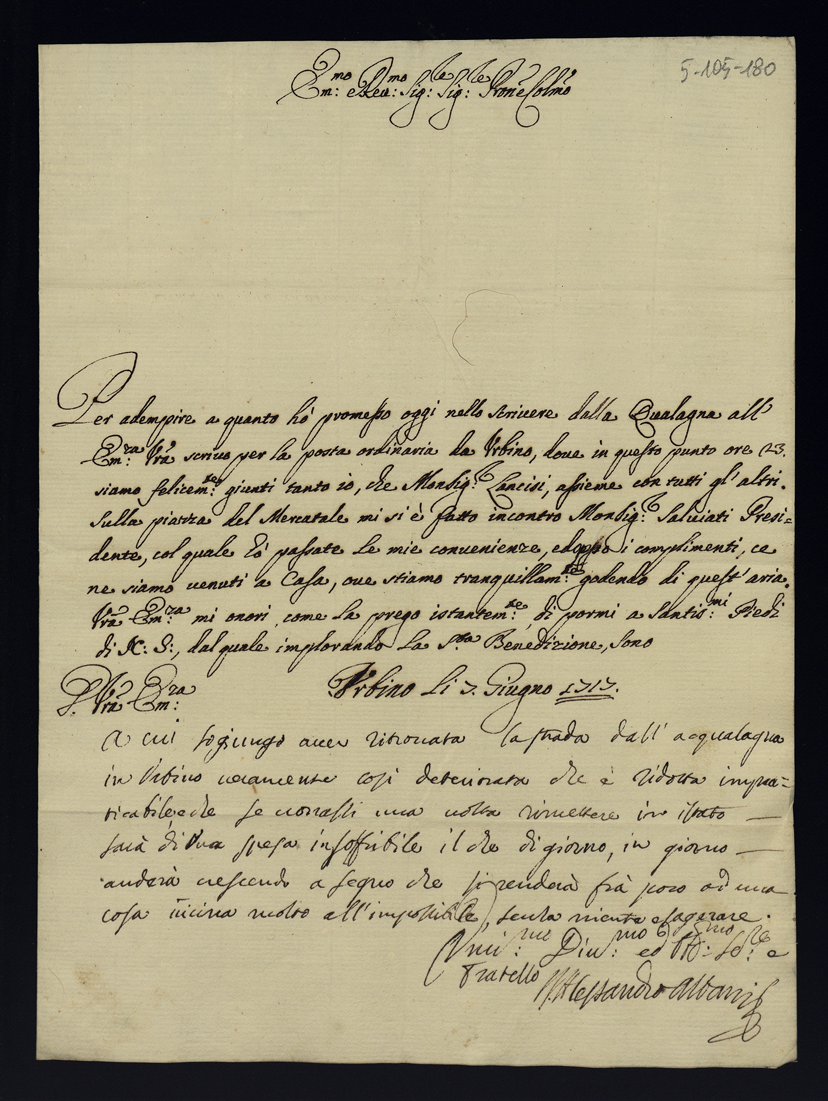 5-105-180
Em:mo e Reu:mo Sig:le Sig:le Prone Colmo
Per adempire a quanto hò promesso oggi nello scriuere dalla Qualagna all'
Em:za Vrā scriuo per la posta ordinaria da Vrbino, doue in questo punto ore 23.
siamo felicem:te giunti tanto io, che Monsig:r Lancisi, assieme con tutti gl'altri.
Sulla piazza del Mercatale mi si è fatto incontro Monsig:r Saluiati Presi=
dente, col quale hò passate le mie conuenienze, e doppo i complimenti, ce
ne siamo uenuti a Casa, oue stiamo tranquillam:te godendo di quest'aria.
Vrā Em:za mi onori, come la prego istantem:te, di pormi a Santis:mi Piedi
di N: S:, dal quale implorando la S:ta Benedizione, sono
D. Vrā Em:za
Vrbino li 7. Giugno 1717.
A cui sogiungo auer ritrouata la strada dall'acqualagna
in Vrbino ueramente cosi deteriorata che è ridotta impra=
ticabile e che se uorrassi una uolta rimettere in istato —
sarà di una spesa insoffribile il che di giorno, in giorno —
anderà crescendo a segno che si renderà frà poco ad una
cosa uicina molto all'impossibile, senza niente esagerare.
Vmi:mo Diu:mo ed Obb:mo Se:re e
Fratello
Alessandro Albani